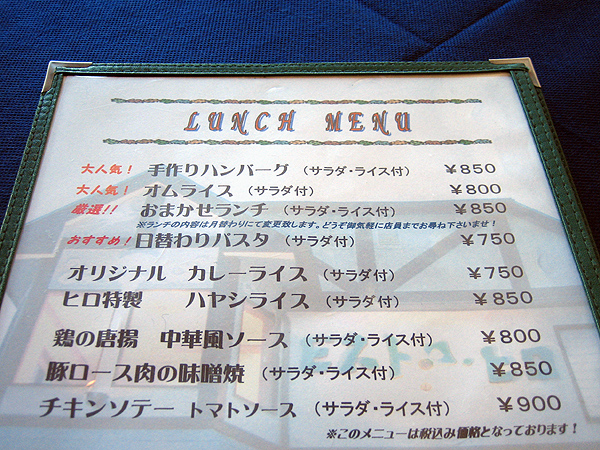 LUNCH MENU
大人気! 手作りハンバーグ (サラダ・ライス付) ¥850
大人気! オムライス (サラダ付) ¥800
厳選!! おまかせランチ (サラダ・ライス付) ¥850
※ランチの内容は月替わりにて変更致します。どうぞ御気軽に店員までお尋ね下さいませ!
おすすめ! 日替わりパスタ (サラダ付) ¥750
オリジナル カレーライス (サラダ付) ¥750
ヒロ特製 ハヤシライス (サラダ付) ¥850
鶏の唐揚 中華風ソース (サラダ・ライス付) ¥800
豚ロース肉の味噌焼 (サラダ・ライス付) ¥850
チキンソテー トマトソース (サラダ・ライス付) ¥900
※このメニューは税込み価格となっております!